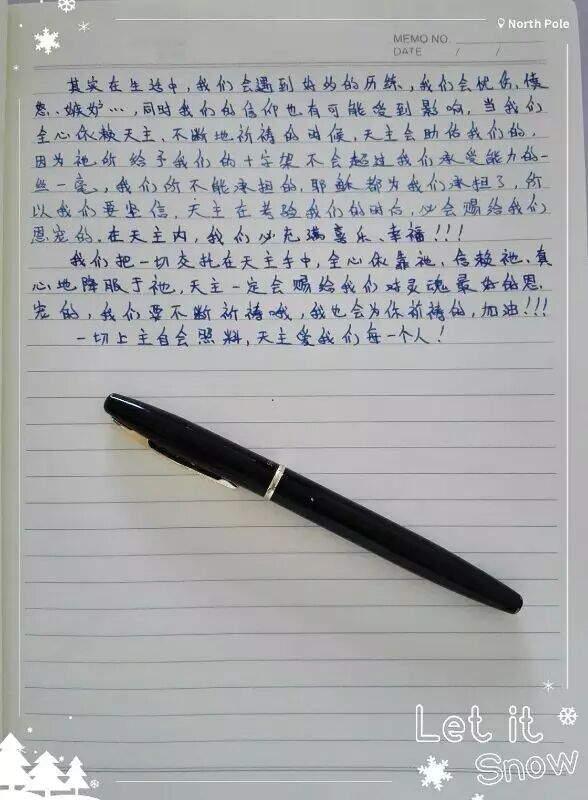 North Pole
MEMO NO.
DATE / /
其实在生活中,我们会遇到好多的历练,我们会忧伤、愤
怒、嫉妒…,同时我们的信仰也有可能受到影响,当我们
全心依赖天主、不断地祈祷的时候,天主会助佑我们的,
因为祂所给予我们的十字架不会超过我们承受能力的一
丝一毫,我们所不能承担的,耶稣都为我们承担了,所
以我们要坚信,天主在考验我们的时候,必会赐给我们
恩宠的.在天主内,我们必充满喜乐、幸福!!!
我们把一切交托在天主手中,全心依靠祂、信赖祂、真
心地降服于祂,天主一定会赐给我们对灵魂最好的恩
宠的,我们要不断祈祷哦,我也会为你祈祷的,加油!!!
一切上主自会照料,天主爱我们每一个人!
Let it
Snow